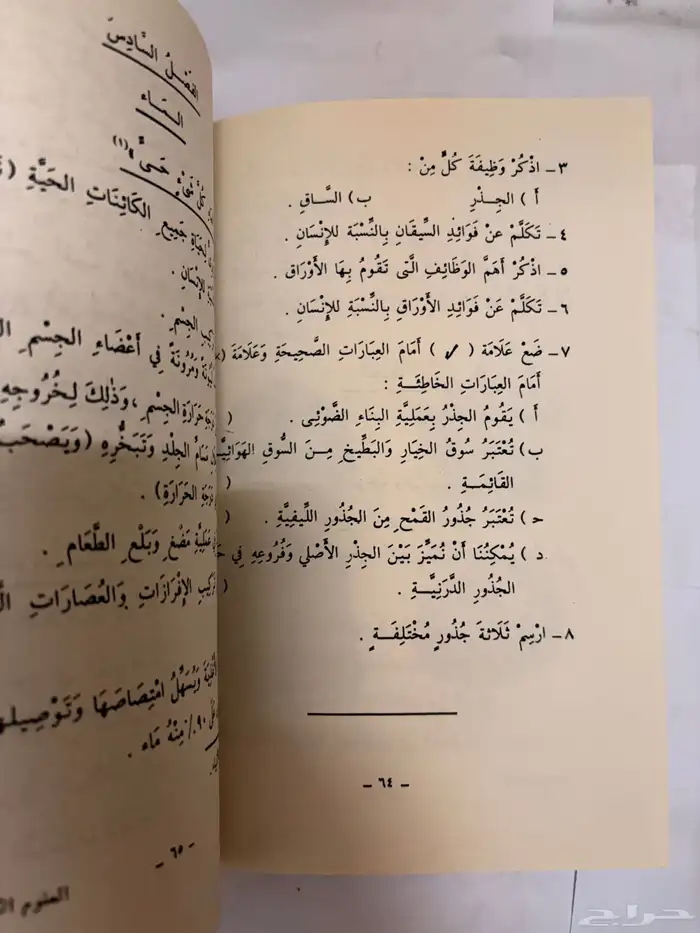 ٣ـ اذْكُرْ وَظِيفَةَ كُلٍّ مِنْ :
أ ) الجِذْرِ ب) السَّاقِ .
٤ـ تَكَلَّمْ عَنْ فَوَائِدِ السِّيقَانِ بِالنِّسْبَةِ للإِنْسَانِ .
٥ـ اذْكُرْ أَهَمَّ الوَظَائِفِ الَّتى تَقُومُ بِهَا الأَوْرَاقِ .
٦ـ تَكَلَّمْ عَنْ فَوَائِدِ الأَوْرَاقِ بِالنِّسْبَةِ للإِنْسَانِ .
٧ـ ضَعْ عَلَامَة ( ✓ ) أَمَامَ العِبَارَاتِ الصَّحِيحَةِ وَعَلَامَةَ (×
أَمَامَ العِبَارَاتِ الخَاطِئَـــةِ :
أ ) يَقُومُ الجِذْرُ بِعَمَلِيَّةِ البِنَاءِ الضَّوْئِى . (
ب) تُعْتَبَرُ سُوقُ الخِيَارِ وَالبَطِّيخِ مِـــنَ السُّوقِ الهَوَائِيَّـ
القَائِمَـــةِ . (
حـ ) تُعْتَبَرُ جُذُورُ القَمْحِ مِنَ الجُذُورِ اللِّيفِيَّةِ . (
د ) يُمْكِنُنَا أَنْ نُمَيِّزَ بَيْنَ الجِذْرِ الأَصْلي وَفُرُوعِهِ فِي
الجُذُورِ الدَّرَنِيَّـــةِ . (
٨ـ ارْسِمْ ثَلَاثَةَ جُذُورٍ مُخْتَلِفَـــةٍ .
ـ ٦٤ ـ
الفَصْلُ السَّادِسُ
المـاء
شَيْءٍ حَيٍّ (١)
جَمِيعِ الكَائِنَاتِ الحَيَّةِ
الإِنْسَانِ .
الجِسْمِ .
وَمُرُونَةً فِي أَعْضَاءِ الجِسْمِ
حَرَارَةِ الجِسْمِ ، وَذٰلِكَ لِخُرُوجِهِ
الجِلْدِ وَتَبَخُّرِهِ (وَيَصْحَبُ
الحَرَارَةِ) .
مَضْغِ وَبَلْعِ الطَّعَامِ .
الإِفْرَازَاتِ وَالعُصَارَاتِ
وَيُسَهِّلُ امْتِصَاصَهَا وَتَوْصِيلَهَا
٩٠٪ مِنْهُ مَاء .
ـ ٦٥ ـ
العلوم
حراج